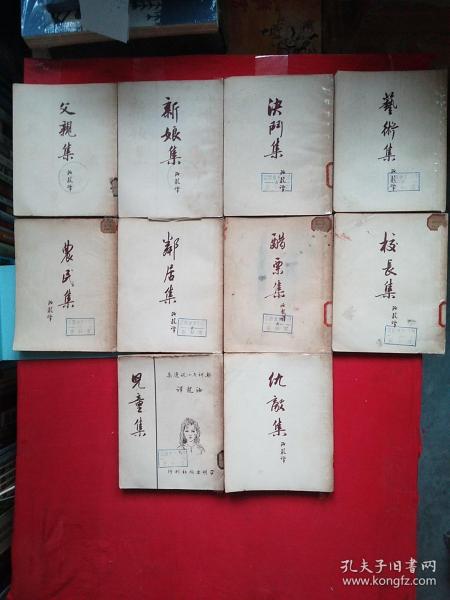 父親集
汝龍譯
新娘集
汝龍譯
決鬥集
汝龍譯
藝術集
汝龍譯
農民集
汝龍譯
鄰居集
汝龍譯
醋栗集
汝龍譯
校長集
汝龍譯
兒童集
契訶夫小說選集
汝龍譯
平明出版社刊行
仇敵集
汝龍譯
孔夫子旧书网
www.kongfz.com